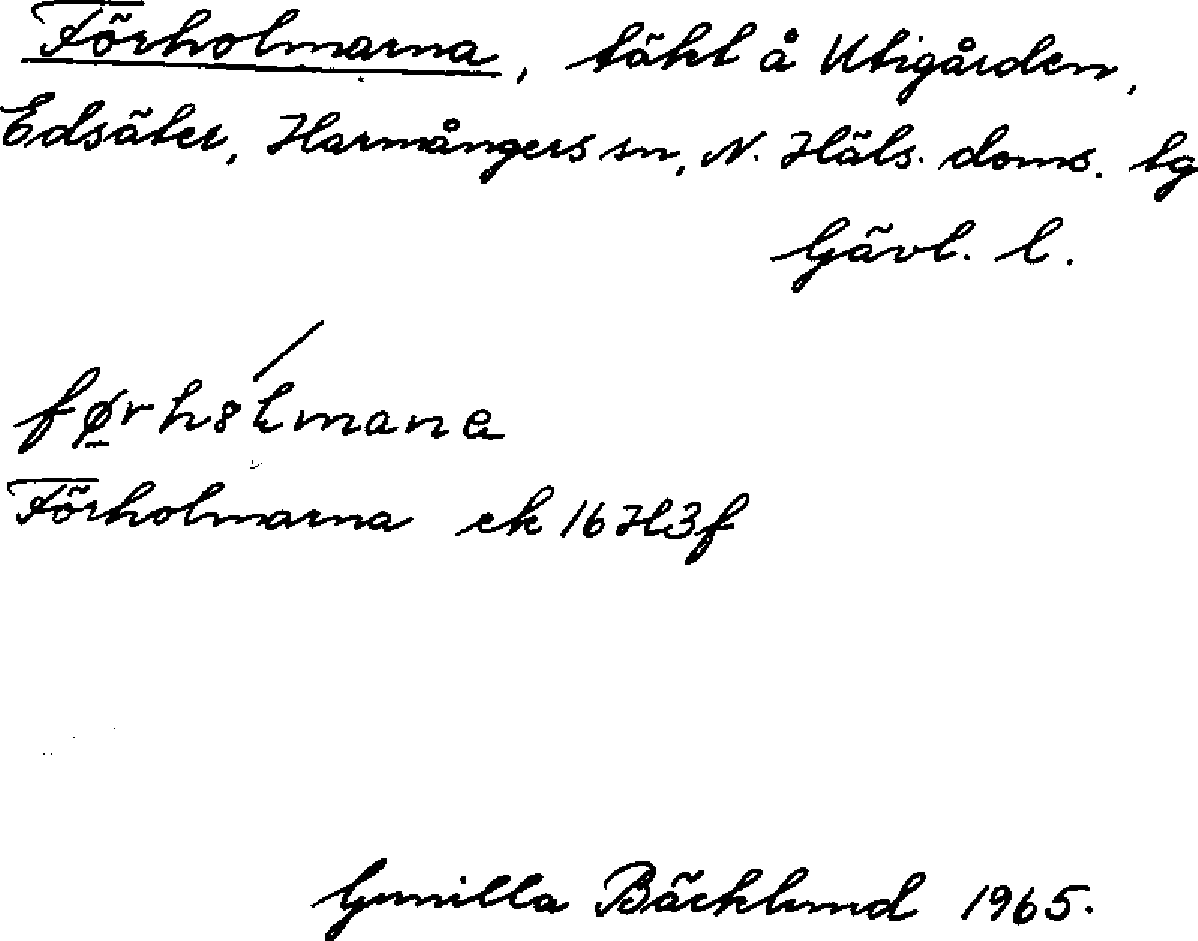 Förholmarna, täkt å Utigården,
Edsäter, Harmångers sn, N. Häls. doms. tg
Gävl. l.
Förholmarna ek 16H3f
Gunilla Bäcklund 1965.